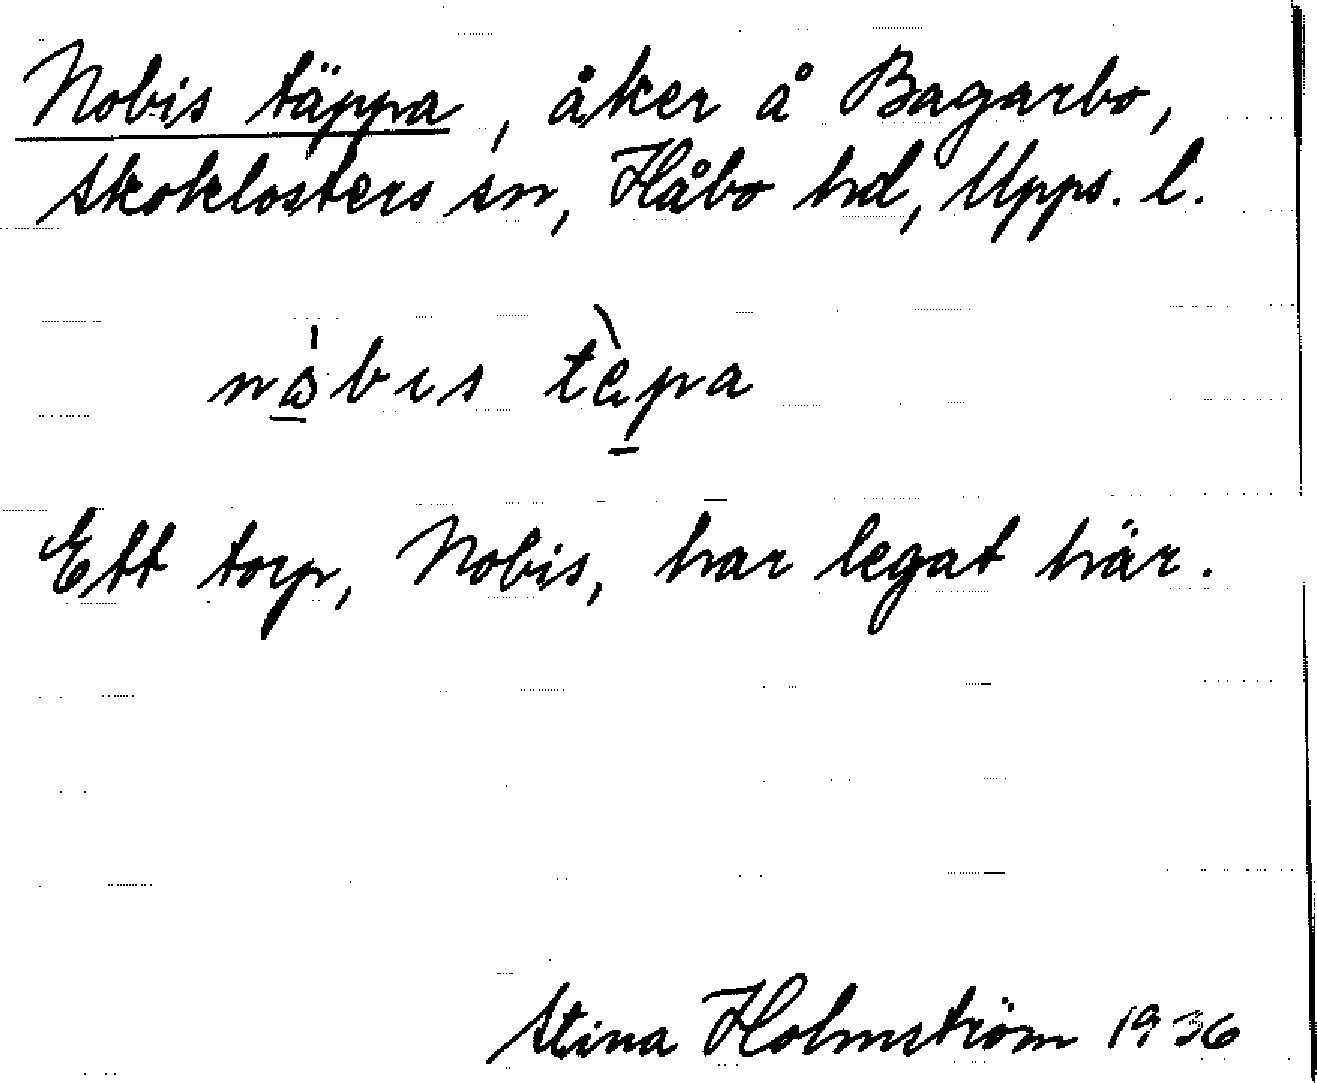 Nobis täppa, åker å Bagarbo,
Skoklosters sn, Håbo hd, Upps. l.
nåbıs tὲpa
Ett torp, Nobis, har legat här.
Stina Holmström 1936